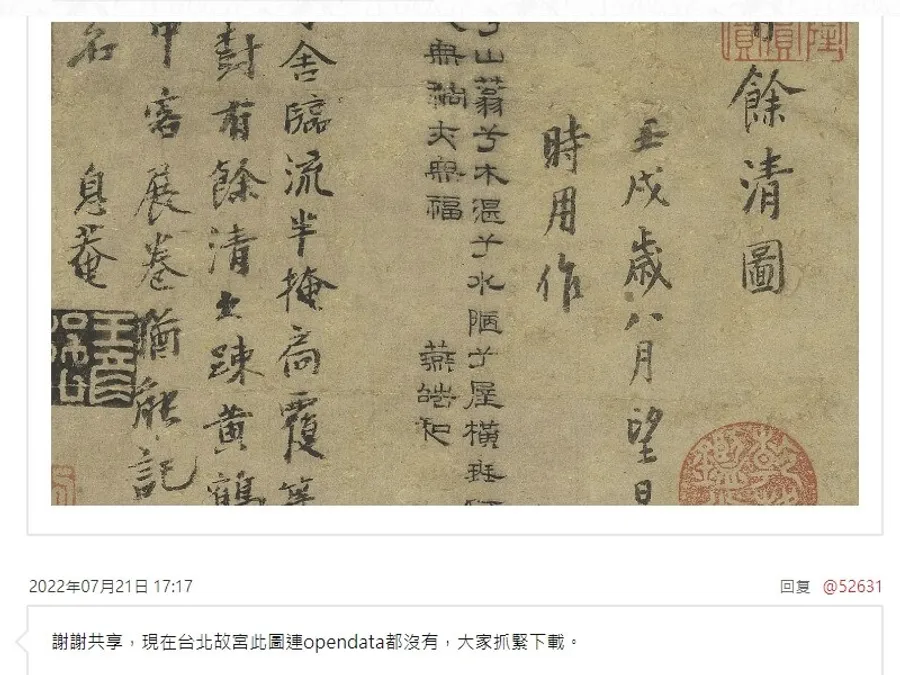 餘清圖
壬戌歲八月望日
時用作
山蓊兮木湿兮水陋兮屋橫
無禍亦無福
舍臨流半掩扃覆
封有餘清 踈黃鶴
客展卷猶能記
名 息菴
2022年07月21日 17:17 回复 @52631
謝謝共享，現在台北故宮此圖連opendata都沒有，大家抓緊下載。